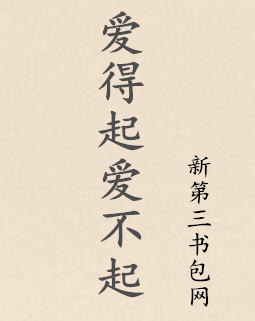 爱得起爱不起
新第三书包网